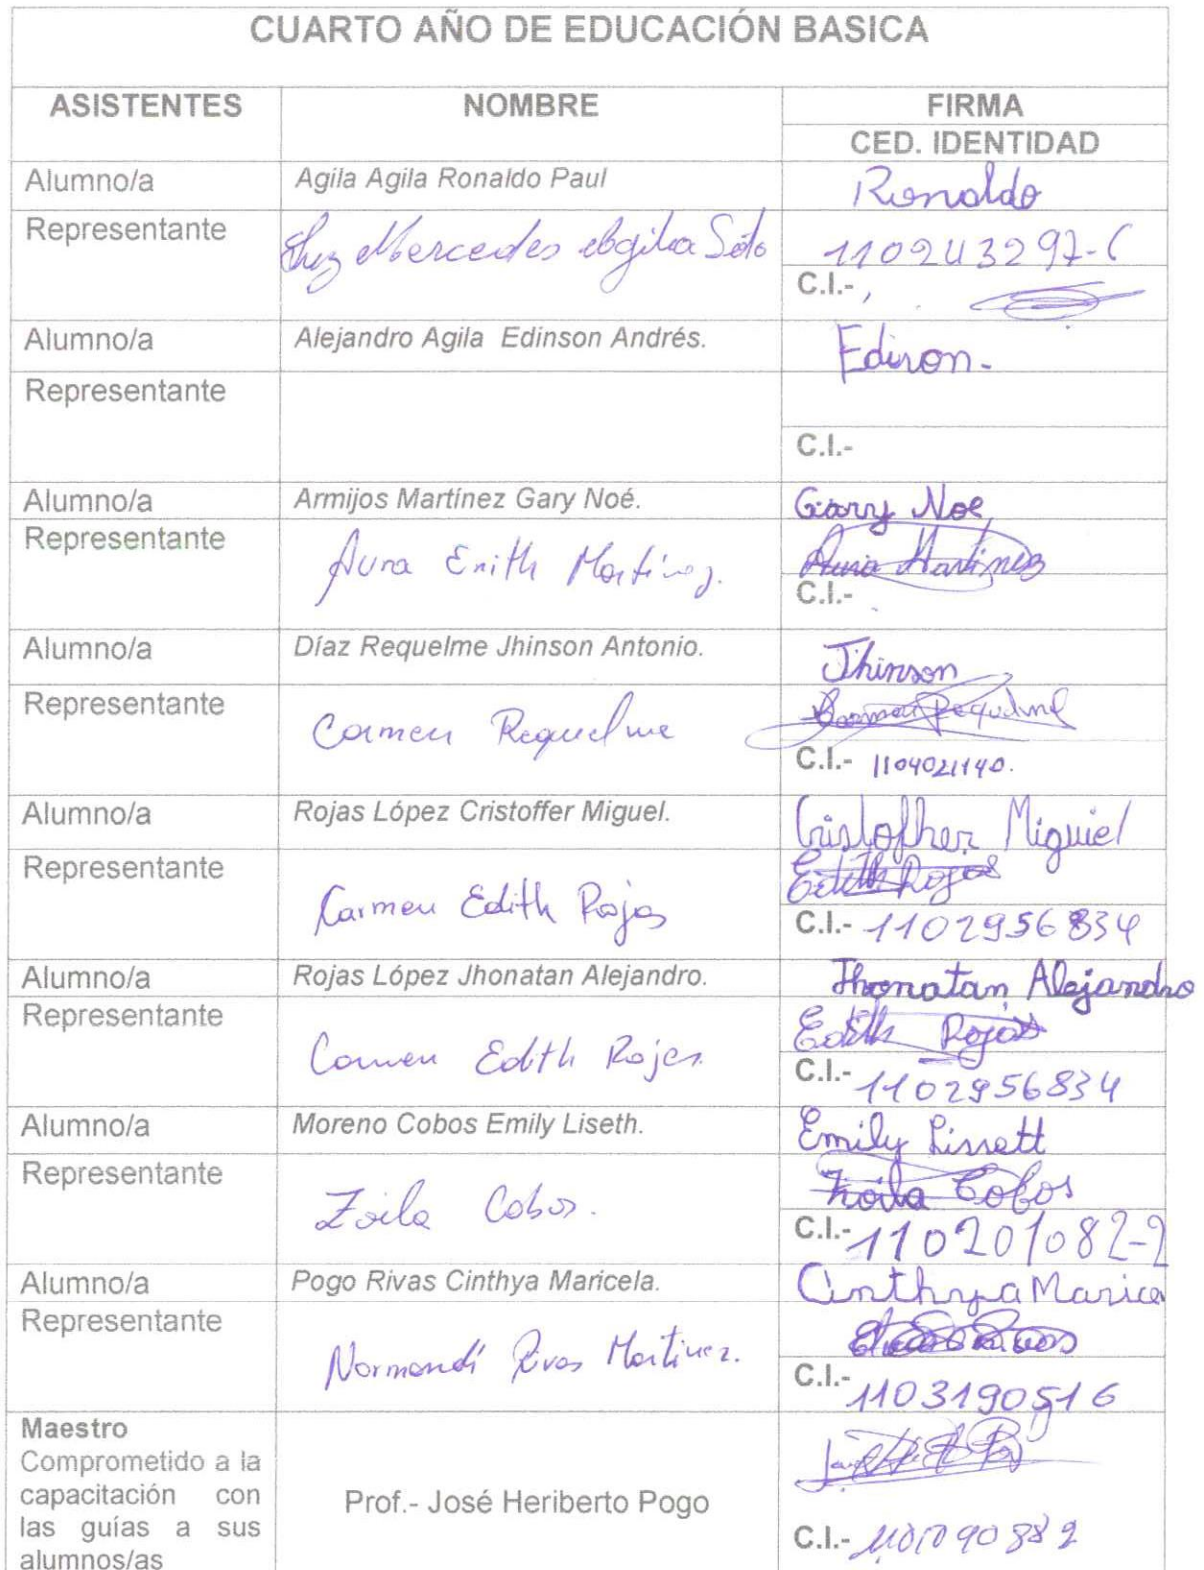 CUARTO AÑO DE EDUCACIÓN BASICA
ASISTENTES NOMBRE FIRMA
CED. IDENTIDAD
Alumno/a Agila Agila Ronaldo Paul Ronaldo
Representante Luz Mercedes Agila Soto 110243297-6
C.I.-
Alumno/a Alejandro Agila Edinson Andrés. Edison-
Representante
C.I.-
Alumno/a Armijos Martínez Gary Noé. Gary Noe
Representante Aura Enith Martínez. Aura Martinez
C.I.-
Alumno/a Díaz Requelme Jhinson Antonio. Jhinson
Representante Carmen Requelme Carmen Requelme
C.I.- 1104021140.
Alumno/a Rojas López Cristoffer Miguel. Cristofher Miguiel
Representante Carmen Edith Rojas Edith Rojas
C.I.- 1102956834
Alumno/a Rojas López Jhonatan Alejandro. Jhonatan Alejandro
Representante Carmen Edith Rojas Edith Rojas
C.I.- 1102956834
Alumno/a Moreno Cobos Emily Liseth. Emily Lissett
Representante Zoila Cobos. Zoila Cobos
C.I.- 110201082-2
Alumno/a Pogo Rivas Cinthya Maricela. Cinthya Marice
Representante Normandí Rivas Martinez.
C.I.- 1103190516
Maestro
Comprometido a la
capacitación con
las guías a sus
alumnos/as
Prof.- José Heriberto Pogo
C.I.-